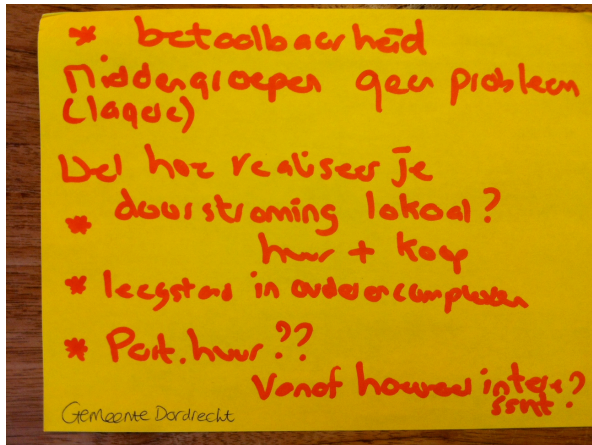 * betaalbaarheid
Middengroepen geen probleem
(lagere)
Wel hoe realiseer je
* doorstroming lokaal?
huur + koop
* leegstand in ouderencomplexen
* Part. huur ??
Vanaf hoeveel intere?
ssnt.
Gemeente Dordrecht